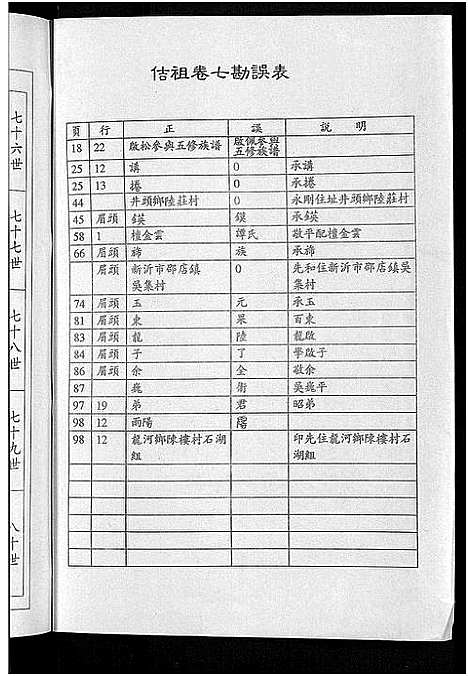 估祖卷七勘誤表
頁 行 正 誤 說明
18 22 啟松參與五修族譜 啟佩參與五修族譜
25 12 講 0 承講
25 13 捲 0 承捲
44 井頭鄉陸莊村 0 永剛住址井頭鄉陸莊村
45 眉頭 鍈 鏌 承鍈
58 1 檀金雲 譚氏 敬平配檀金雲
66 眉頭 旆 族 承旆
眉頭 新沂市邵店鎮吳集村 0 先和住新沂市邵店鎮吳集村
74 眉頭 玉 元 承玉
81 眉頭 東 果 百東
83 眉頭 龍 陸 龍啟
84 眉頭 子 了 學啟子
86 眉頭 余 全 敬余
87 巍 衛 吳巍平
97 19 弟 君 昭弟
98 12 雨陽
98 12 龍河鄉陳樓村石湖組 印先住龍河鄉陳樓村石湖組
七十六世
七十七世
七十八世
七十九世
八十世